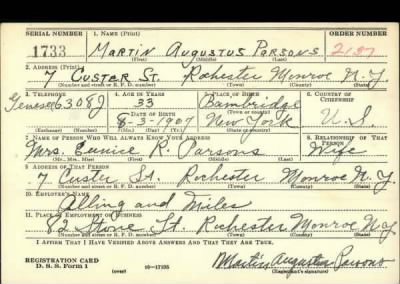 SERIAL NUMBER 1. NAME (Print) ORDER NUMBER
1733 MARTIN AUGUSTUS PARSONS 2137
(First) (Middle) (Last)
2. ADDRESS (Print)
7 CUSTER ST. Rochester Monroe N.Y.
(Number and street or R. F. D. number) (Town) (County) (State)
3. TELEPHONE 4. AGE IN YEARS 5. PLACE OF BIRTH 6. COUNTRY OF CITIZENSHIP
Genesee 6308J 33 Bainbridge
DATE OF BIRTH (Town or county)
8-3-1907 New York U.S.
(Exchange) (Number) (Mo.) (Day) (Yr.) (State or country)
7. NAME OF PERSON WHO WILL ALWAYS KNOW YOUR ADDRESS 8. RELATIONSHIP OF THAT PERSON
Mrs. Eunice R. Parsons Wife
(Mr., Mrs., Miss) (First) (Middle) (Last)
9. ADDRESS OF THAT PERSON
7 Custer St. Rochester Monroe N.Y.
(Number and street or R. F. D. number) (Town) (County) (State)
10. EMPLOYER'S NAME
Alling and Miles
11. PLACE OF EMPLOYMENT OR BUSINESS
82 Stone St. Rochester Monroe N.Y.
(Number and street or R. F. D. number) (Town) (County) (State)
I AFFIRM THAT I HAVE VERIFIED ABOVE ANSWERS AND THAT THEY ARE TRUE.
REGISTRATION CARD Martin Augustus Parsons
D. S. S. Form 1 (over) 16—17105 (Registrant's signature)